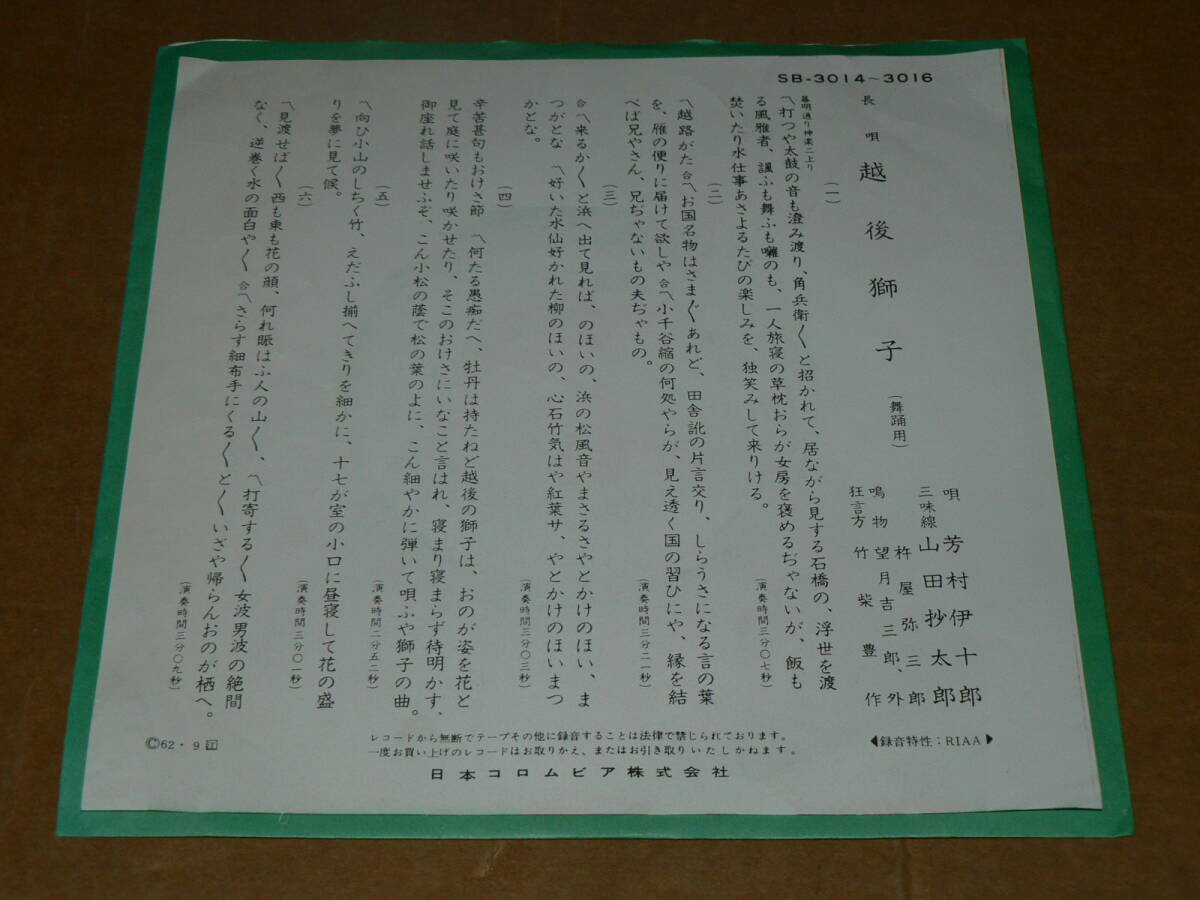 SB-3014～3016
長唄 越後獅子 (舞踊用)
唄 芳村伊十郎
三味線 山田抄太郎
杵屋弥三郎
鳴物 望月吉三郎、外
狂言方 竹柴豊作
(一)
幕明通り神楽二上り
〽打つや太鼓の音も澄み渡り、角兵衛〱と招かれて、居ながら見する石橋の、浮世を渡
る風雅者、諷ふも舞ふも囃のも、一人旅寝の草枕おらが女房を褒めるぢゃないが、飯も
焚いたり水仕事あさよるたびの楽しみを、独笑みして来りける。
(演奏時間三分〇七秒)
(二)
〽越路がた 合〽お国名物はさま〲あれど、田舎訛の片言交り、しらうさになる言の葉
を、雁の便りに届けて欲しや 合〽小千谷縮の何処やらが、見え透く国の習ひにや、縁を結
べば兄やさん、兄ぢゃないもの夫ぢゃもの。
(演奏時間三分二一秒)
(三)
合〽来るか〱と浜へ出て見れば、のほいの、浜の松風音やまさるさやとかけのほい、ま
つがとな 〽好いた水仙好かれた柳のほいの、心石竹気はや紅葉サ、やとかけのほいまつ
かとな。
(演奏時間三分〇三秒)
(四)
辛苦甚句もおけさ節 〽何たる愚痴だへ、牡丹は持たねど越後の獅子は、おのが姿を花と
見て庭に咲いたり咲かせたり、そこのおけさにいなこと言はれ、寝まり寝まらず待明かす、
御座れ話しませふぞ、こん小松の蔭で松の葉のよに、こん細やかに弾いて唄ふや獅子の曲。
(演奏時間二分五二秒)
(五)
〽向ひ小山のしちく竹、えだふし揃へてきりを細かに、十七が室の小口に昼寝して花の盛
りを夢に見て候。
(演奏時間三分〇一秒)
(六)
〽見渡せば〱西も東も花の顔、何れ賑はふ人の山〱、〽打寄する〱女波男波の絶間
なく、逆巻く水の面白や〱 合〽さらす細布手にくる〱と〱いざや帰らんおのが栖へ。
(演奏時間三分〇九秒)
◀録音特性：RIAA▶
レコードから無断でテープその他に録音することは法律で禁じられております。
一度お買い上げのレコードはお取りかえ、またはお引き取りいたしかねます。
日本コロムビア株式会社
Ⓒ62・9